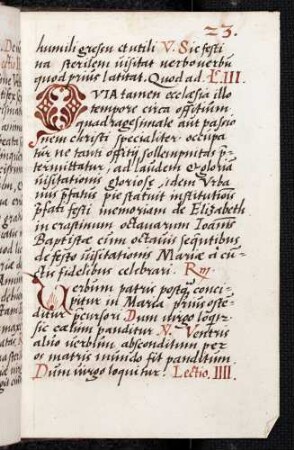 23.
humili gressu et utili V. Sic festi
na sterilem visitat verbo verbū
quod prius latitat. Quod ad. L III
QVIA tamen ecclesia illo
tempore circa officium
quadragesimale aut passio
nem christi specialiter occupa
tur ne tanti offitij sollempnitas p̄
termittatur, ad laudem et gloriā
visitationis gloriose, idem Vrba
nus p̄fatus pie statuit institutionē
p̄fati festi memoriam de Elizabeth
in crastinum octauarum Ioannis
Baptistæ cum octauis sequētibus
de festo visitationis Mariæ a cū
ctis fidelibus celebrari. Rm̄
Verbum patris postq̄ conci
pitur in Maria prius oste
ditur p̄cursori. Dum virgo loq̄r
sic cælum panditur V. Ventris
aluo verbum absconditum per
os matris mundo fit panditum.
Dum virgo loquitur. Lectio. IIII.